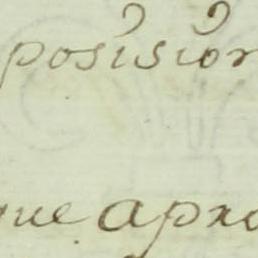 posision
que apro